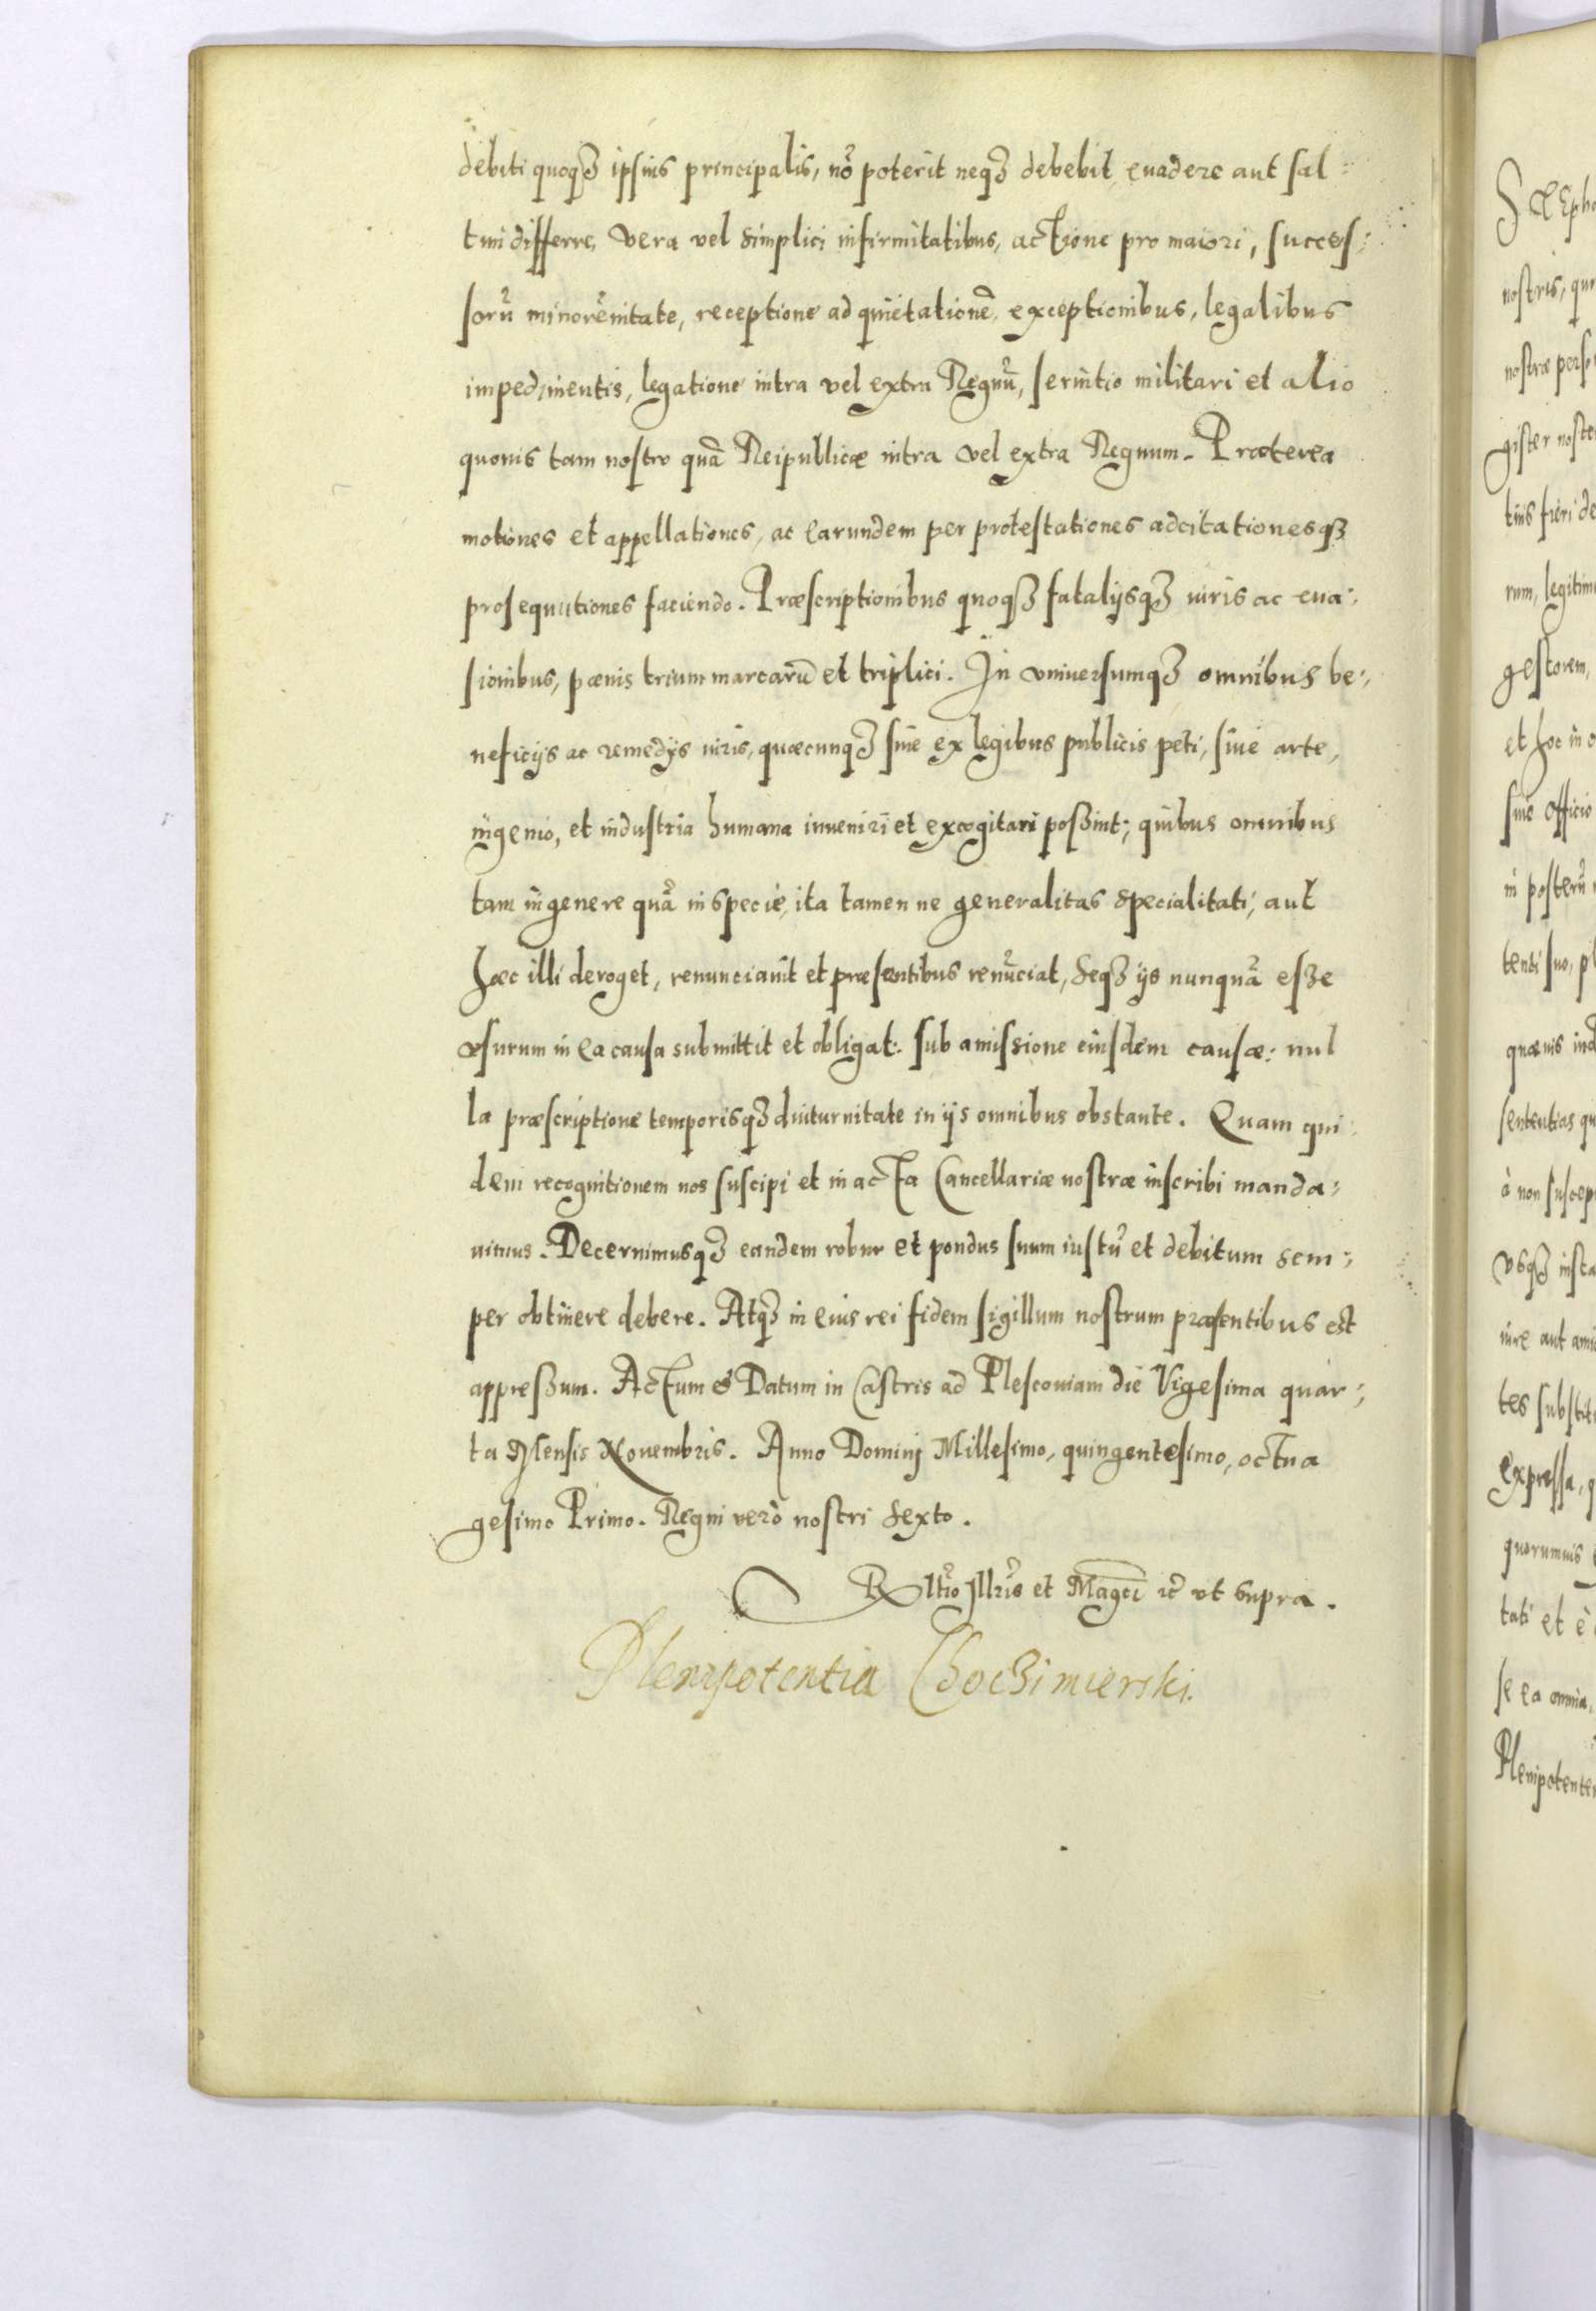 debiti quoqȝ ipsius principalis, nō poterit neqȝ debebit euadere aut sal=
tim differre, vera vel simplici infirmitatibus, actione pro maiori, succes:
sorū minorēnitate, receptione ad quietationē, exceptionibus, legalibus
impedimentis, legatione intra vel extra Regnū, seruitio militari et alio
quouis tam nostro quā Reipublicæ intra vel extra Regnum. Præterea
motiones et appellationes, ac earundem per protestationes adcitationesqȝ
prosequutiones faciendo. Præscriptionibus quoqȝ fatalijsqȝ iuris ac eua:
sionibus, pænis trium marcarū et triplici. In vniuersumqȝ omnibus be:
neficijs ac remedijs iuris, quæcunqȝ siue ex legibus publicis peti, siue arte,
ingenio, et industria humana inueniri et excogitari poßint; quibus omnibus
tam in genere quā in specie, ita tamen ne generalitas specialitati, aut
hæc illi deroget, renunciauit et præsentibus renūciat, seqȝ ijs nunquā esze
vsurum in ea causa submittit et obligat: sub amissione eiusdem causæ: nul
la præscriptione temporisqȝ diuturnitate in ijs omnibus obstante. Quam qui
dem recognitionem nos suscipi et in acta Cancellariæ nostræ inscribi manda:
uimus. Decernimusqȝ eandem robur et pondus suum iustū et debitum sem:
per obtinere debere. Atqȝ in eius rei fidem sigillum nostrum præsentibus est
appreßum. Actum & Datum in Castris ad Plescouiam die Vigesima quar:
ta Mensis Nouembris. Anno Domini Millesimo, quingentesimo, octua
gesimo Primo. Regni verò nostri sexto.
Rltio Illris et Magci rc vt supra.
Plenipotentia Choczimierski.
nostris,
nostræ perso
gister noste
tius fieri de
rum, legitim
gestorem,
et hoc in o
siue officio
in posterū
tenti suo, pl
quæuis ind
sententias qu
à non suscep
vsqȝ insta
iure aut ami
tes substit
expressa, q
quorumuis
tati et è
se ea omnia,
Plenipotente